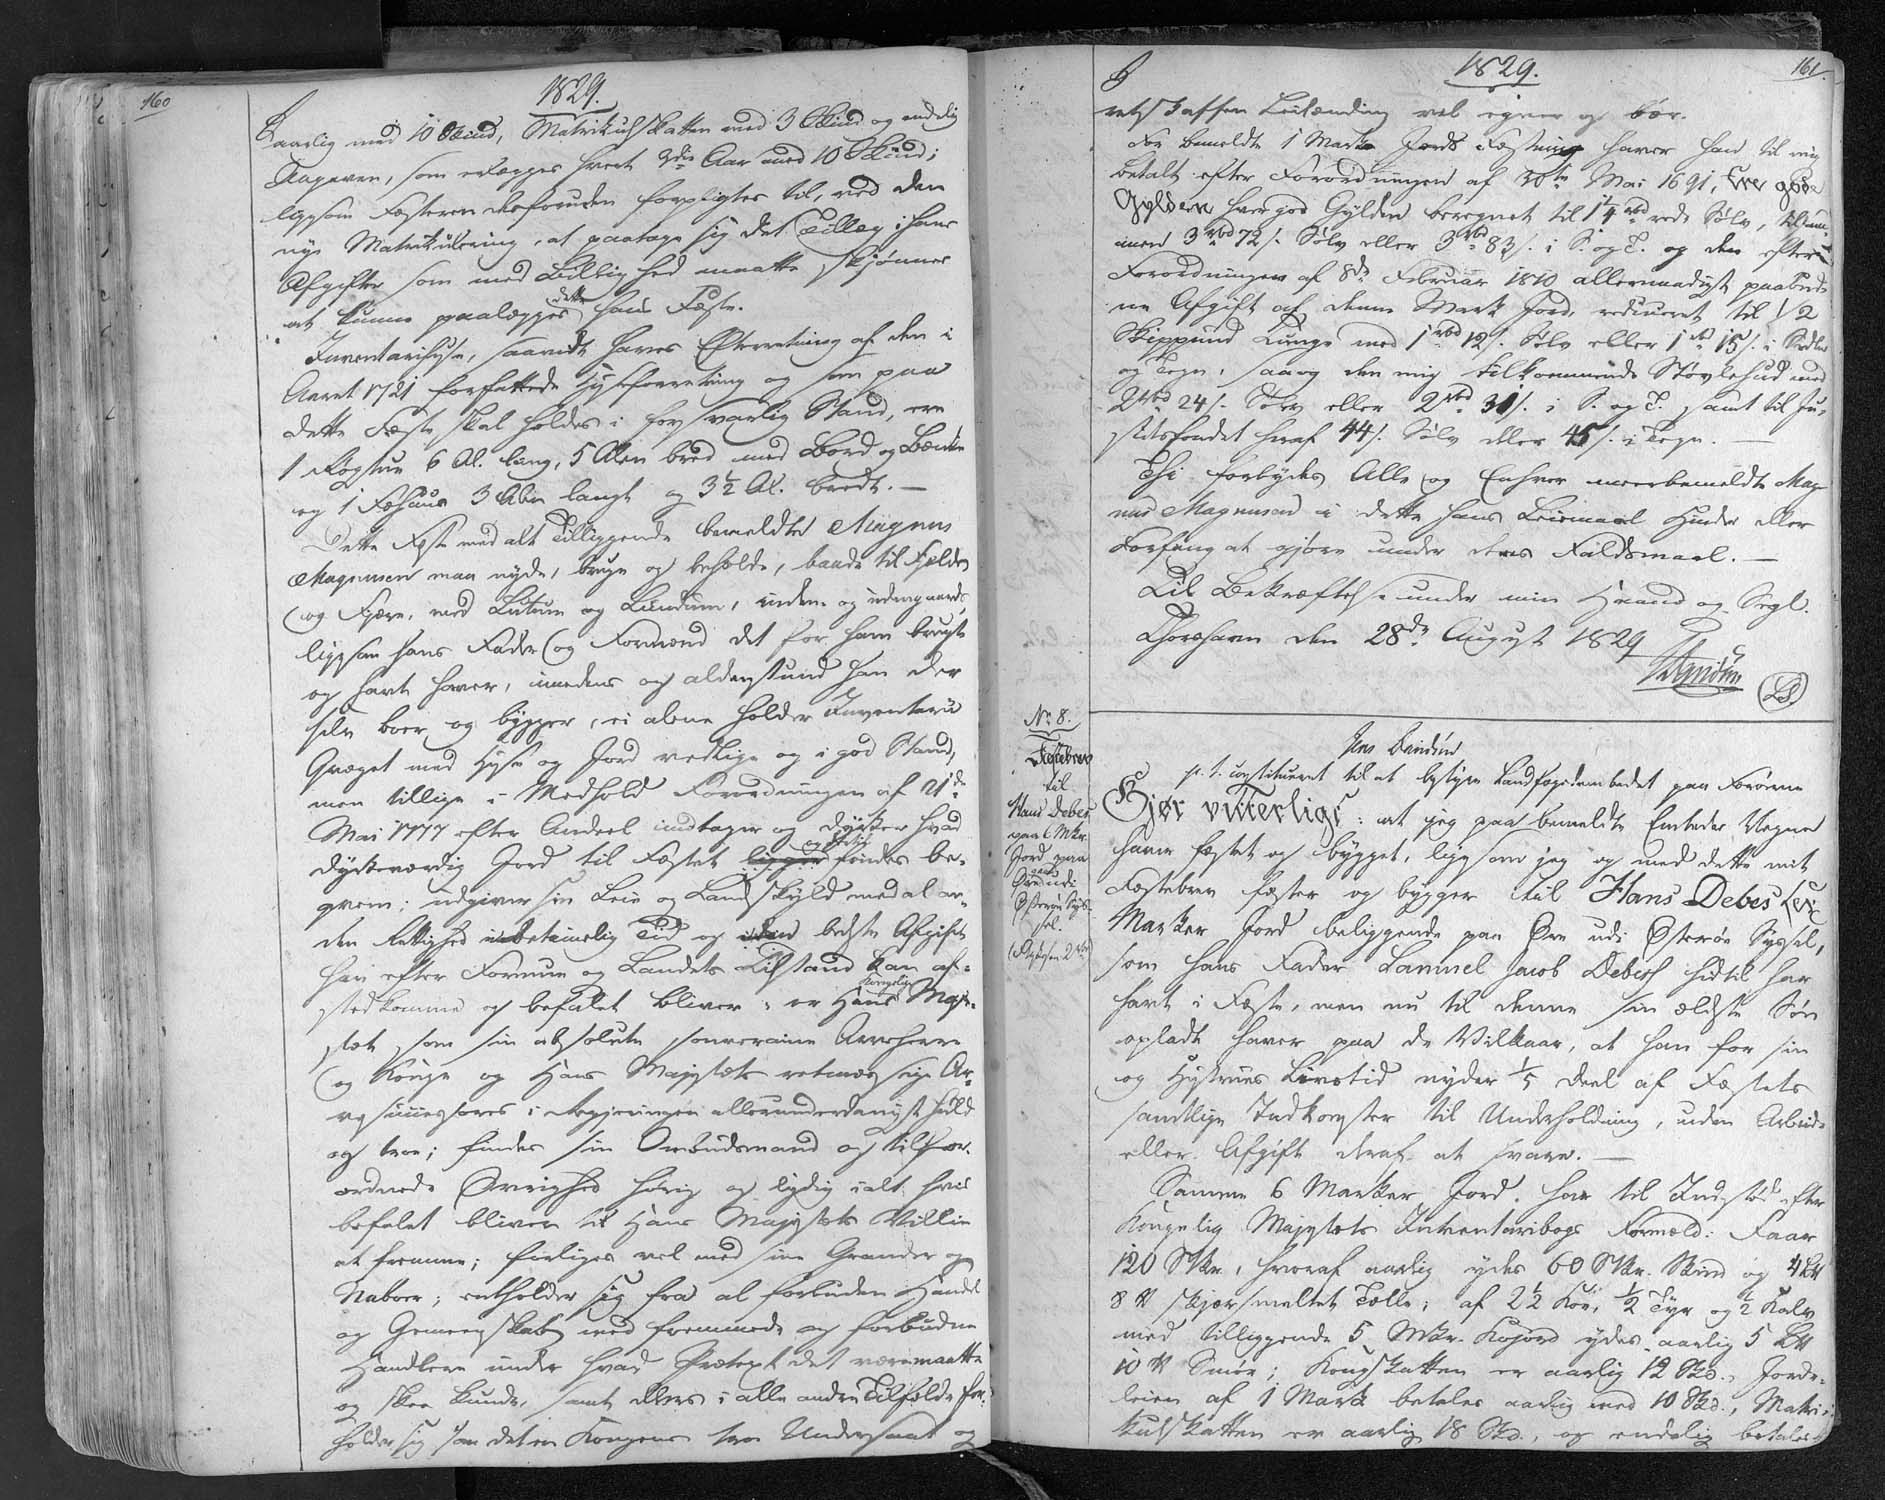 160
1829.
aarlig med 10 Skind, Matrikulskatten med 3 Skind og endelig
Tagaven, som erlægges hvert 3die Aar med 10 Skind;
ligesom Fæsteren desforuden forpligtes til, ved den
nye Matrikulering, at paatage sig det Tillæg i hans
Afgifter som med Billighed maatte skjønnes
at kunne paalægges dette hans Fæste.
Inventarihuse, saavidt haves Efterretning af den i
Aaret 1721 forfattede Huusforretning og som paa
dette Fæste skal holdes i forsvarlig Stand, ere
1 Rogstue 6 Al. lang, 5 Alen bred med Bord og Bænke
og 1 Fæhuus 3 Alen langt og 3½ Al. bredt. —
Dette Fæste med alt Tilliggende bemeldte Magnus
Magnussen maa nyde, bruge og beholde, baade til Fjelde
og Fjære, med Lutum og Lundum, inden og udengaards
ligesom hans Fader og Formænd det for ham brugt
og havt haver, imedens og aldenstund han der
selv boer og bygger, ei alene holder Inventarii
Qvæget med Huse og Jord vedlige og i god Stand,
men tillige i Medhold Forordningen af 21de
Mai 1777 efter Andeel indtager og dyrker hvad
dyrkeværdig Jord til Fæstet ligger findes be-
qvem; udgiver sin Leie og Landskyld med al an-
den Rettighed i betimelig Tid og i den bedste Afgift
han efter Formue og Landets Tilstand kan af-
sted komme og befalet bliver; er Hans Kongelige Maje-
stæt som sin absolute souveraine Arveherre
og Konge og Hans Majestæts retmæssige Ar-
vesuccessores i Regjeringen allerunderdanigst huld
og troe; findes sin Ombudsmand og tilfor-
ordnede Øvrighed hørig og lydig i alt hvis
befalet bliver til Hans Majestæts Villie
at fremme; forliges vel med sine Grander og
Naboer; entholder sig fra al forbuden Handel
og Gemeenskab med fremmede og forbudne
Handlere under hvad Prætext det være maatte
og skee kunde, samt ellers i alle andre Tilfælde for-
holder sig som det en Kongens troe Undersaat og
1829.
161.
retskaffen Leilænding vel egner og bør.
For bemeldte 1 Mark Jords Fæstning haver han til mig
betalt efter Forordningen af 30te Mai 1691, tre gode
Gylden hver god Gylden beregnet til 1¼ rbd rede Sølv, tilsam-
men 3 rbd 72 s. Sølv eller 3 rbd 83 s. i S. og T. og den efter
Forordningen af 8de Februar 1810 allernaadigst paabud-
ne Afgift af denne Mark Jord, reduceret til 1/2
Skippund Tunge med 1 rbd 12 s. Sølv eller 1 rbd 15 s. i Sedler
og Tegn, saa og den mig tilkommende Støvlehud med
2 rbd 24 s. Sølv eller 2 rbd 31 s. i S. og T. samt til Ju-
stitsfondet heraf 44 s. Sølv eller 45 s. i Tegn. —
Thi forbydes Alle og Enhver meerbemeldte Mag-
nus Magnussen i dette hans Leiemaal Hinder eller
Forfang at gjøre under deres Faldsmaal. —
Til Bekræftelse under min Haand og Segl.
Thorshavn den 28de August 1829
LS.
No 8.
Fæstebrev
til
Hans Debes
paa 6 Mkr.
Jord paa
Øre udi
Østerøe Sys-
sel.
Jens Davidsen
p. t. constitueret til at bestyre Landfogedembedet paa Færøerne
Gjør vitterligt: at jeg paa bemeldte Embedes Vegne
haver fæstet og bygget, ligesom jeg og med dette mit
Fæstebrev fæster og bygger til Hans Debes sex
Marker Jord beliggende paa Øre udi Østerøe Syssel,
som hans Fader Samuel Jacob Debes hidtil har
havt i Fæste, men nu til denne sin ældste Søn
opladt haver paa de Vilkaar, at han for sin
og Hustrues Livstid nyder 1/5 Deel af Fæstets
samtlige Indkomster til Underholdning, uden Arbeide
eller Afgift deraf at svare. —
Samme 6 Marker Jord har til Indstød efter
Kongelig Majestæts Inventariibogs Formeld: Faar
120 Stkr., hvoraf aarlig ydes 60 Stkr. Skind og 4 L℔
8 ℔ skjærsmeltet Tælle; af 2½ Køe, ½ Tyr og ½ Kalv
med tilliggende 5 Mkr. Kojord ydes aarlig 5 L℔
10 ℔ Smør; Kongskatten er aarlig 12 Skd., Jorde-
leien af 1 Mark betales aarlig med 10 Skd., Matri-
kulskatten er aarlig 18 Skd., og endelig betales